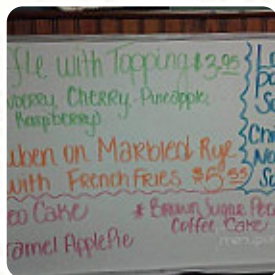 fle with Topping $3.95
wberry, Cherry, Pineapple,
Raspiberry)
uben on Marbled Rye
with French Fries $6.55
eo Cake
* Brown Sugar Pec
Coffee Cake
ramel Apple Pie